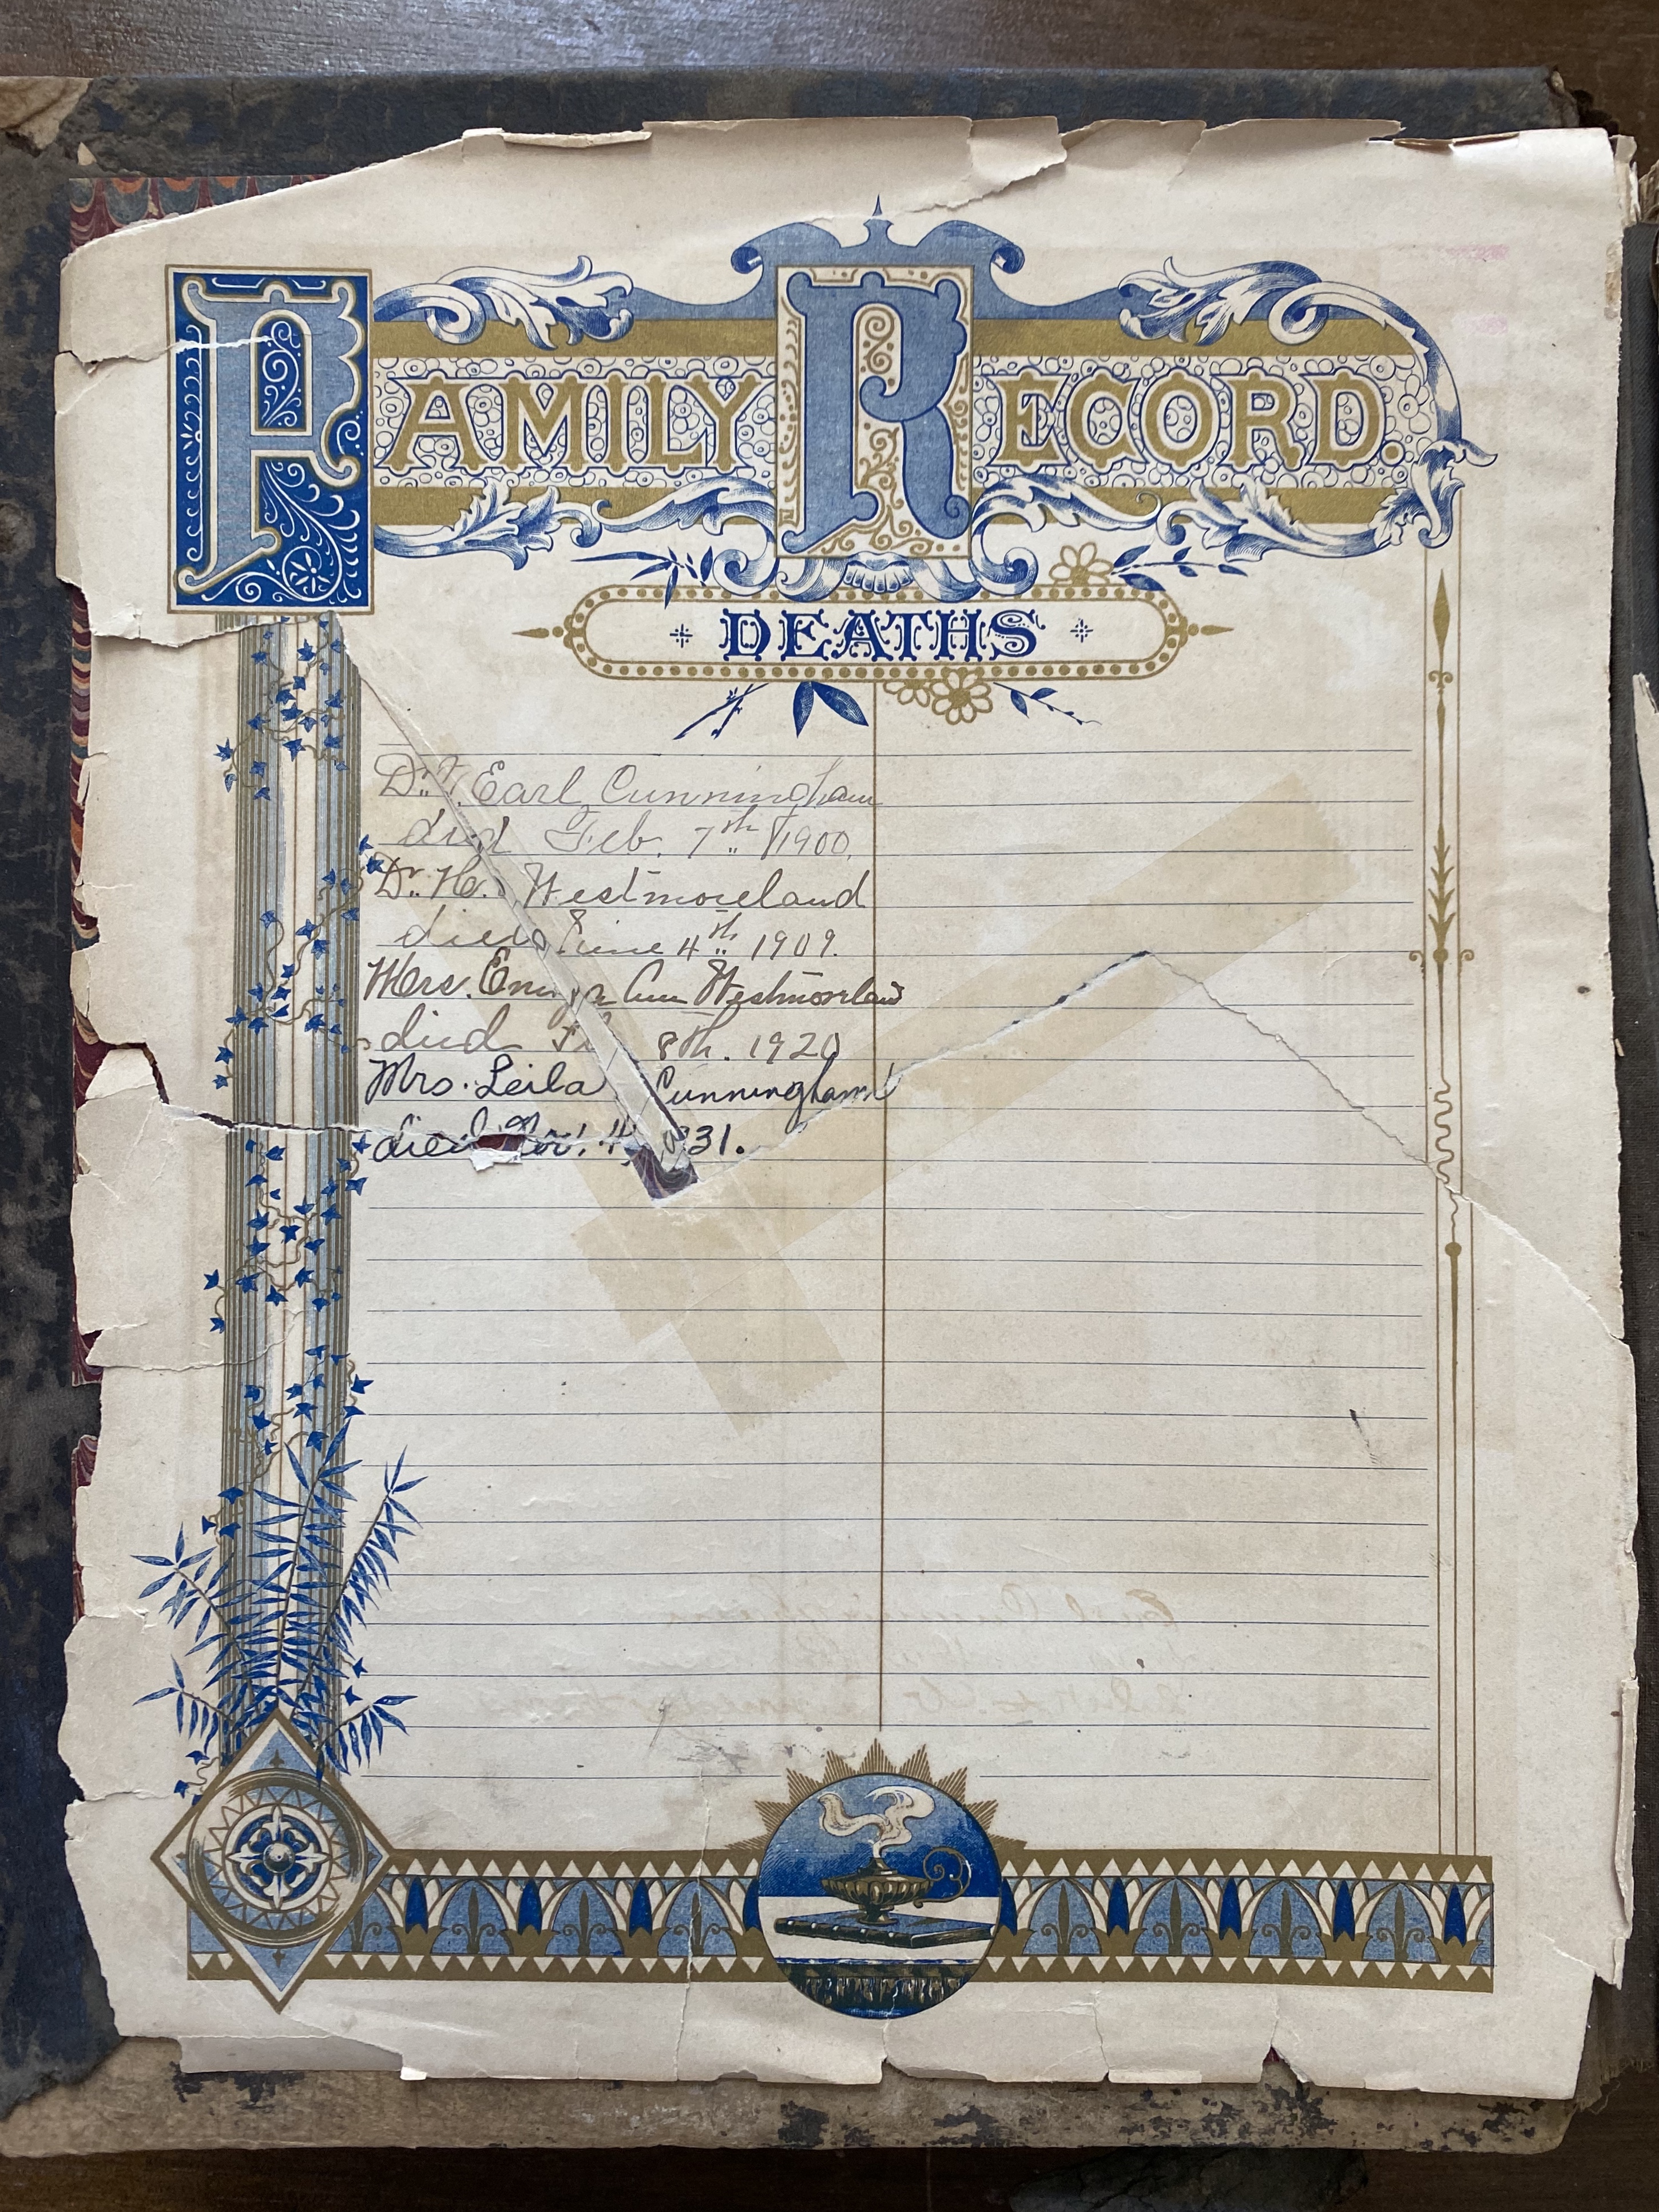 FAMILY RECORD.
DEATHS
Dr. Earl Cunningham
died Feb. 7th 1900.
Dr. H. Westmoreland
died June 4th 1909.
Mrs. Ann Westmoreland
died 8th. 1920
Mrs. Leila Cunningham
died Nov. 4, 31.